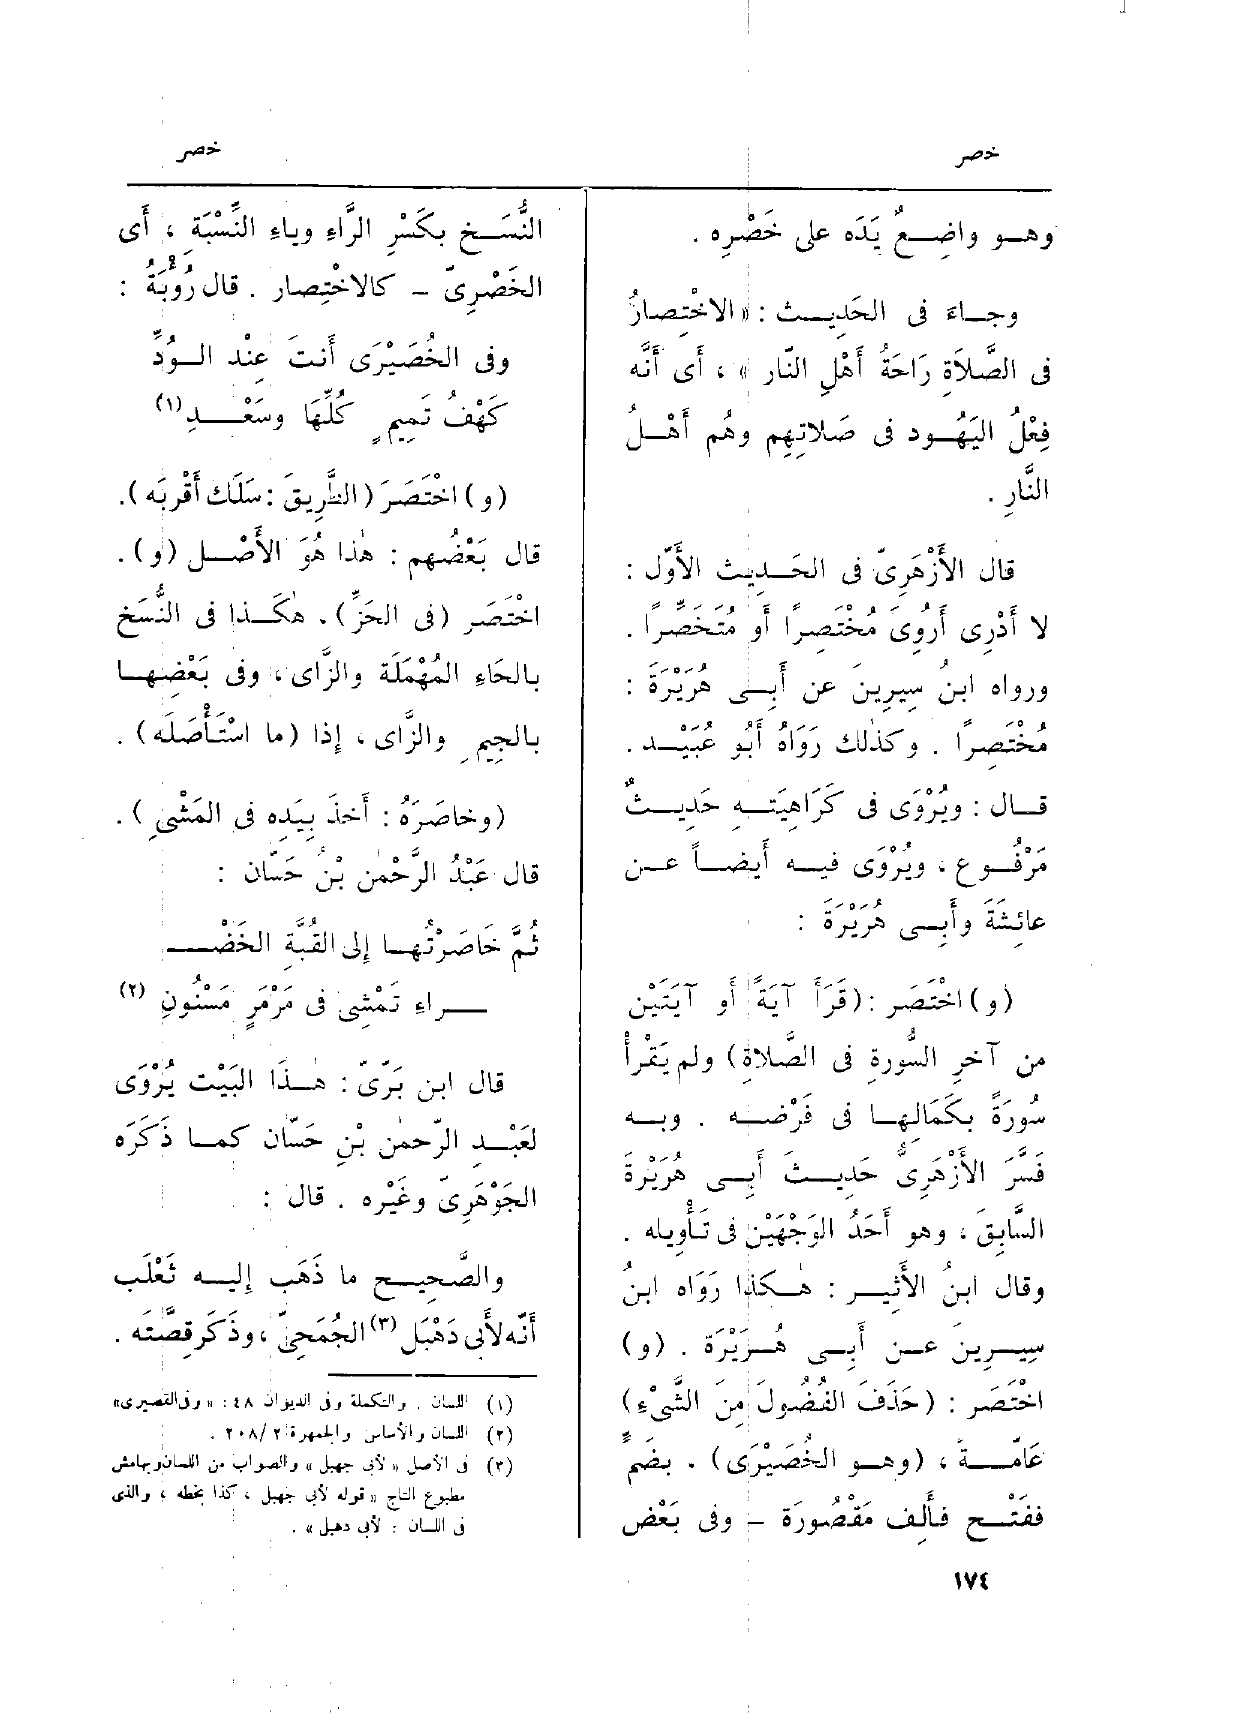 خصر
خصر
وهـو واضِـعٌ يَدَه على خَصْرِه .
وجـاءَ فى الحَدِيـث : «الاخْتِصارُ
فى الصَّلاَة رَاحَةُ أَهْلِ النّار » ، أَى أَنَّه
فِعْلُ اليَهُـود فى صَلاتِهِم وهُم أَهْـلُ
النَّارِ .
قال الأَزْهَرِىّ فى الحَـدِيث الأَوّل :
لا أَدْرِى أَرُوِىَ مُخْتَصِرًا أَو مُتَخَصِّرًا .
ورواه ابنُ سِيرِينَ عن أَبِـى هُرَيْرَةَ :
مُخْتَصِرًا . وكذٰلك رَوَاهُ أَبُو عُبَيْـد .
قـال : ويُرْوَى فى كَرَاهِيَتِـه حَدِيـثٌ
مَرْفُـوع ، ويُرْوَى فيـه أَيضـاً عـن
عائِشَةَ وأَبِـى هُرَيْرَةَ :
(و) اخْتَصَر : (قَرَأَ آيَةً أَو آيَتَيْن
من آخرِ السُّورةِ فى الصَّلاةِ) ولم يَقْرأْ
سُورَةً بكَمَالِهـا فى فَرْضِـه . وبـه
فَسَّرَ الأَزْهَرِىُّ حَدِيـثَ أَبِـى هُرَيْرَةَ
السَّابِقَ ، وهو أَحَدُ الوَجْهَيْن فى تَأْوِيله .
وقال ابنُ الأَثِيـر : هٰـكذا رَوَاه ابنُ
سِيـرِينَ عـن أَبِـى هُـرَيْرَة . (و)
اخْتَصَر : (حَذَفَ الفُضُولَ مِنَ الشَّىْءِ)
عامّـة ، (وهـو الخُصَيْرَى) . بضَمٍّ
ففَتْـح فأَلِف مَقْصُورَة – وفى بَعْض
النُّسَـخ بكَسْرِ الرَّاءِ وياءِ النِّسْبَةِ ، أَى
الخَصْرِىّ – كالاخْتِصار . قال رُؤْبَةُ :
وفى الخُصَيْرَى أَنتَ عِنْد الـوُدِّ
كَهْفُ تَمِيمٍ كُلِّهَا وسَعْـدِ (١)
(و) اخْتَصَرَ (الطَّرِيقَ : سَلَك أَقْربَه) .
قال بَعْضُهم : هٰذا هُوَ الأَصْـل (و) .
اخْتَصَر (فى الحَزِّ) . هٰكَـذا فى النُّسَخ
بالحَاءِ المُهْمَلَة والزَّاى ، وفى بَعْضِهـا
بالجِيمِ والزَّاى ، إِذا (ما اسْتَأْصَلَه) .
(وخاصَرَهُ : أَخذَ بِيَدِه فى المَشْىِ) .
قال عَبْدُ الرَّحْمٰنِ بْنُ حَسَّان :
ثُمَّ خَاصَرْتُهـا إِلى القُبَّةِ الخَضْـ
ـراءِ تَمْشِى فى مَرْمَرٍ مَسْنُونِ (٢)
قال ابن بَرِّىّ : هـٰذَا البَيْت يُرْوَى
لعَبْـدِ الرّحمٰن بْنِ حَسّان كمـا ذَكَرَه
الجَوْهَرِىّ وغَيْرِه . قال :
والصَّحِيـح ما ذَهَب إِليـه ثَعْلَب
أَنّه لأَبى دَهْبَل (٣) الجُمَحِىّ ، وذَكر قِصَّته .
(١) اللسان . والتكملة وفى الديوان ٤٨ : « وفى القصيرى»
(٢) اللسان والأساس والجمهرة ٢/ ٢٠٨ .
(٣) فى الأصل « لأبى جهبل » والصواب من اللسان وبهامش
مطبوع التاج « قوله لأبى جهبل ، كذا بخطه ، والذى
فى اللسان : لأبى دهبل » .
١٧٤